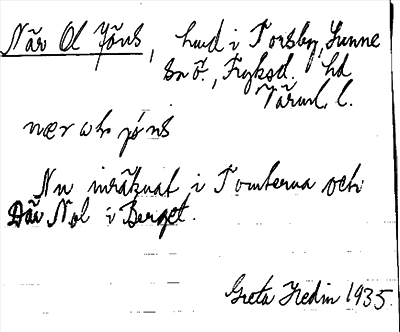 När Ol Jöns, hmd i Torsby, Sunne
sn ö., Fryksd. hd
Värml. l.
nær ωh jóns
Nu inräknat i Tomterna och
Där Nol i Berget.
Greta Hedin 1935.